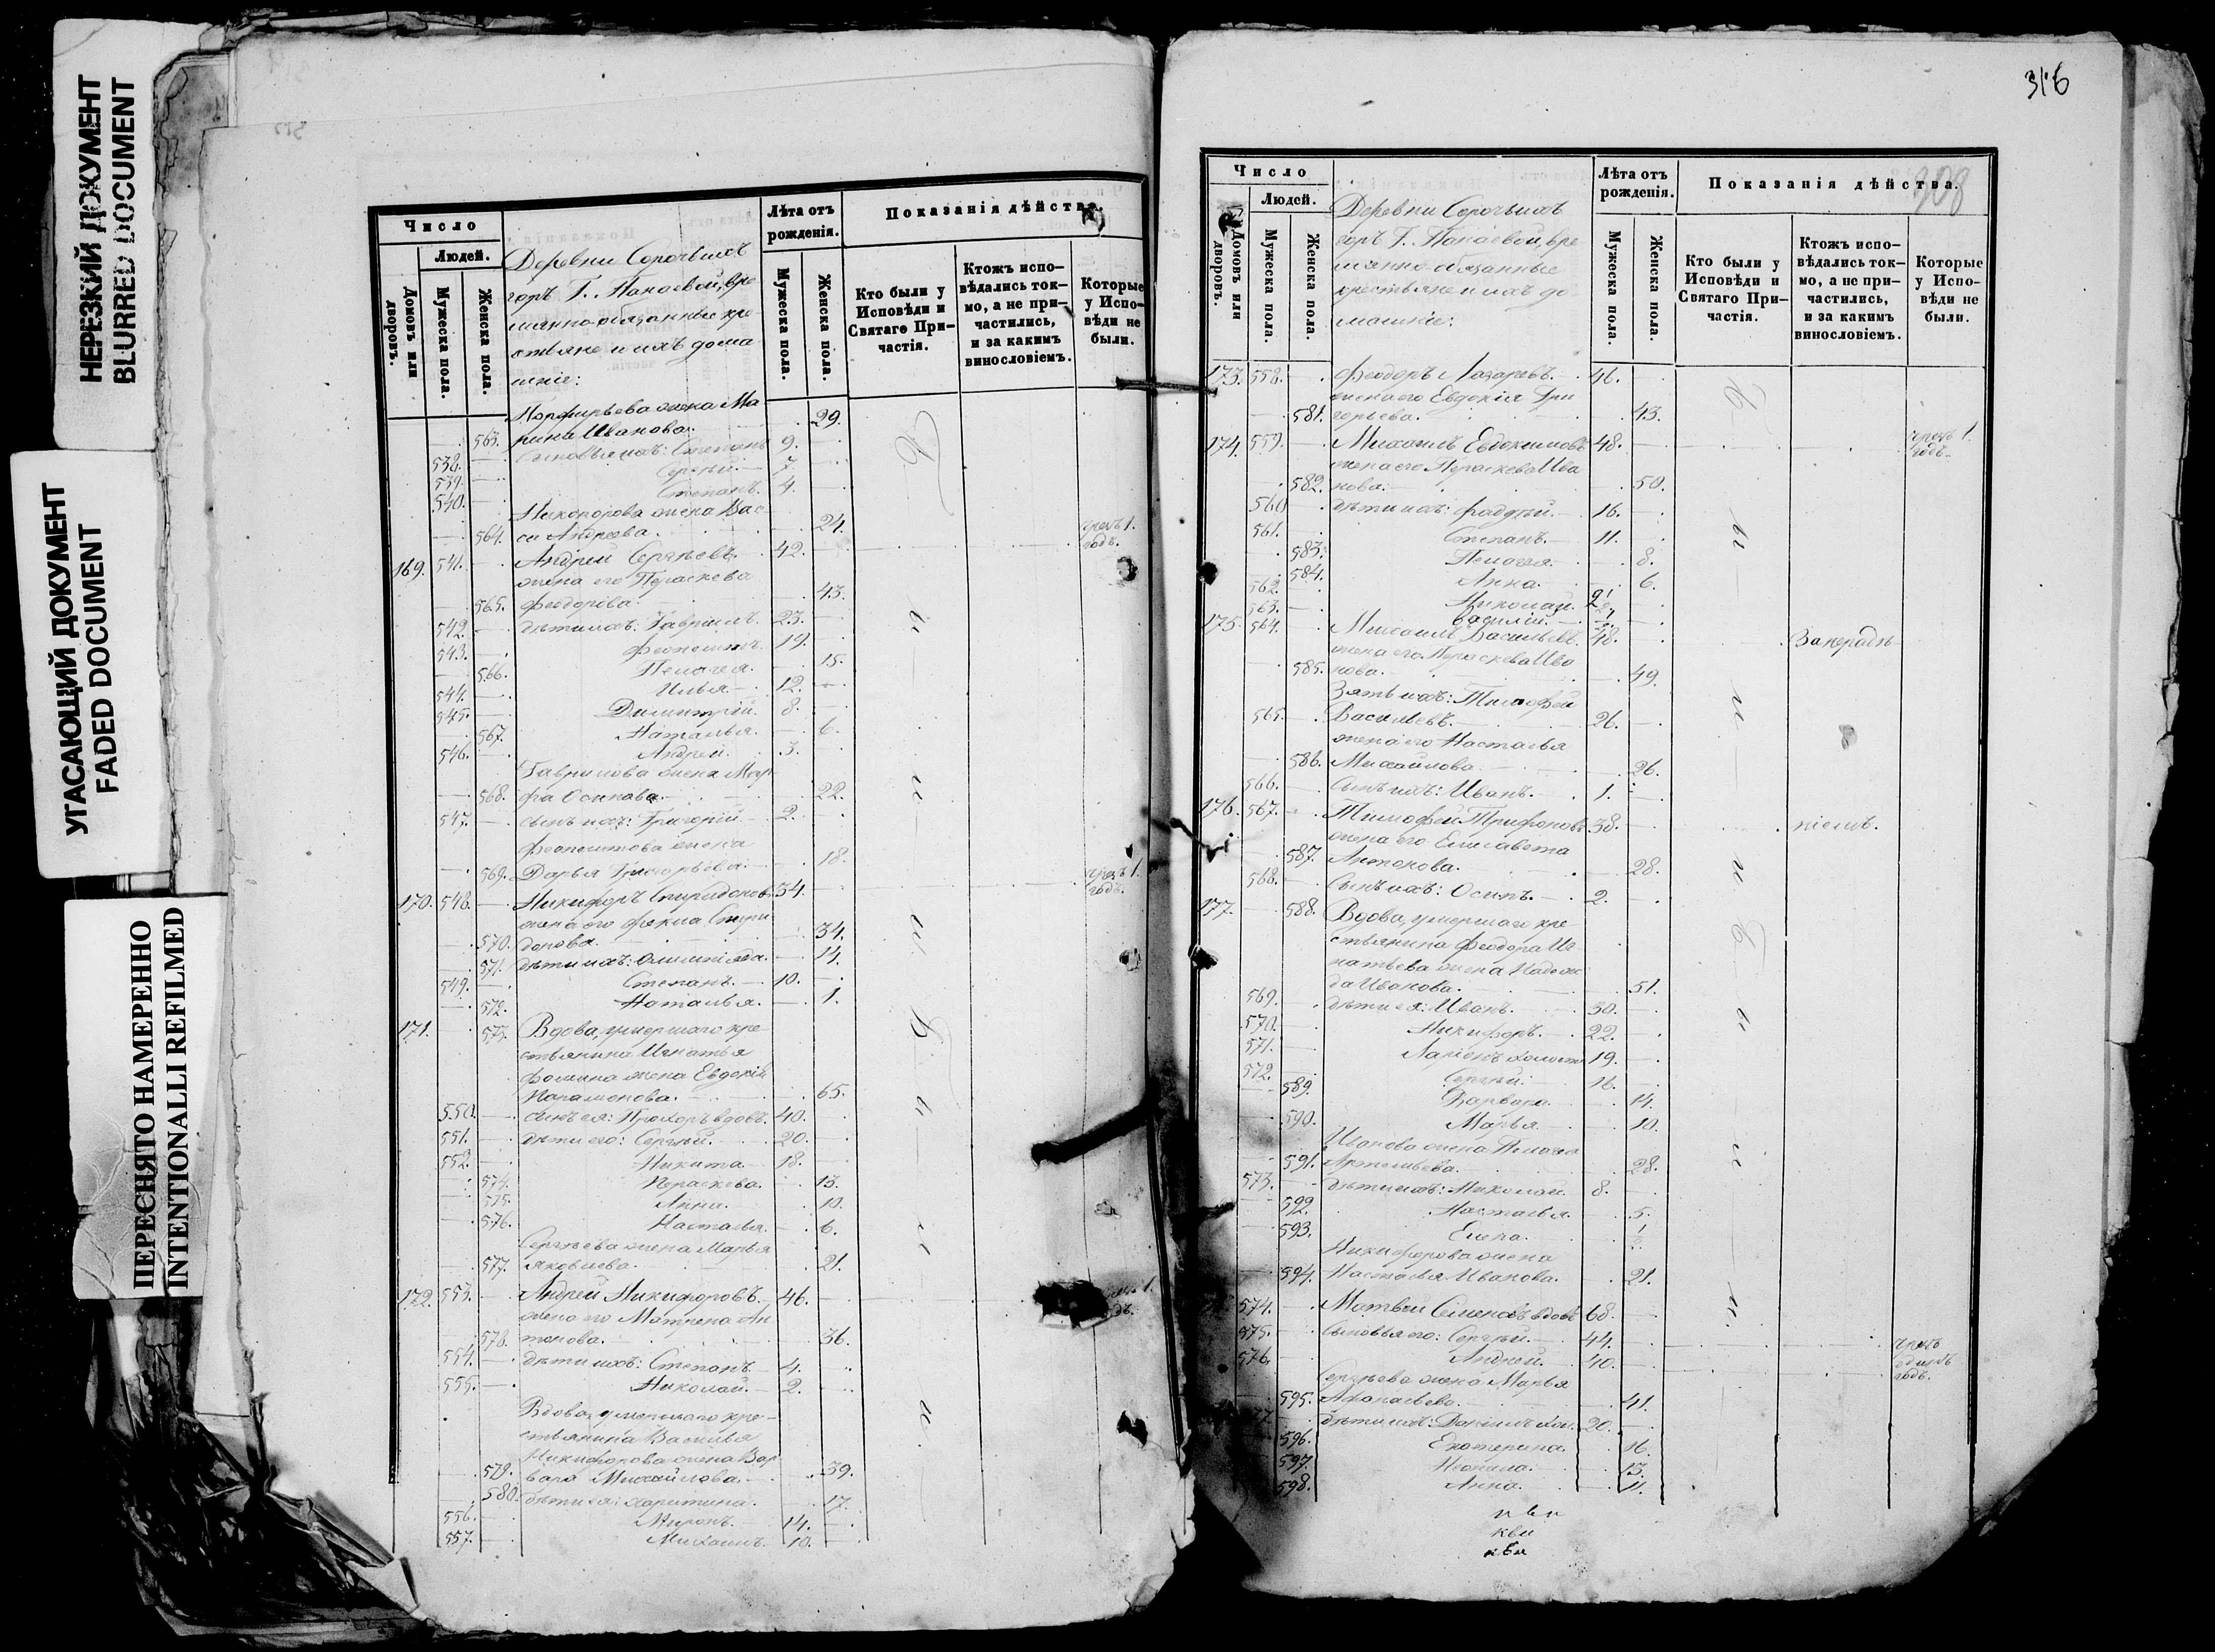 НЕРЕЗКИЙ ДОКУМЕНТ
BLURRED DOCUMENT
УГАСАЮЩИЙ ДОКУМЕНТ
FADED DOCUMENT
ПЕРЕСНЯТО НАМЕРЕННО
INTENTIONALLI REFILMED
Число
Людей.
Домовъ или дворовъ.
Мужеска пола.
Женска пола.
Деревни Сорочьихъ
горъ Г. Панаевой, вре
менно-обязанные кре
стьяне и ихъ дома
шніе:
Лѣта отъ рожденія.
Мужеска пола.
Женска пола.
Показанія дѣйства.
Кто были у Исповѣди и Святаго Причастія.
Ктожъ исповѣдались токмо, а не причастились, и за какимъ винословіемъ.
Которые у Исповѣди не были.
Порфирьева жена Ма
563. рина Иванова. 29.
538. Сыновья ихъ: Степанъ 9.
539. Сергѣй. 7.
540. Степанъ. 4.
Никонорова жена Вас
564. са Андреева. 24.
169. 541. Андрей Сергѣевъ. 42. чрезъ 1. годъ.
жена его Параскева
565. Феодорова. 43.
542. дѣти ихъ: Гавріилъ. 23.
543. Феопемптъ. 19.
566. Пелагея. 15.
544. Илья. 12.
545. Димитрій. 8.
567. Наталья. 6.
546. Андрей. 3.
Гаврилова жена Мар
568. фа Осипова. 22.
547. сынъ ихъ: Григорій 2.
Феопемптова жена
569. Дарья Григорьева. 18.
170. 548. Никифоръ Спиридоновъ 34. чрезъ 1. годъ.
жена его Фекла Спири
570. донова. 34.
571. дѣти ихъ: Олимпіада. 14.
549. Степанъ. 10.
572. Наталья. 1.
171. 573. Вдова, умершаго кре
стьянина Игнатья
Фомина жена Евдокія
Парамонова. 65.
550. сынъ ея: Прохоръ вдовъ. 40.
551. дѣти его: Сергѣй. 20.
552. Никита 18.
574. Параскева. 13.
575. Анна. 10.
576. Настасья. 6.
Сергѣева жена Марья
577. Яковлева. 21.
172. 553. Андрей Никифоровъ. 46.
жена его Матрена Ан
578. тонова. 36.
554. дѣти ихъ: Степанъ 4.
555. Николай. 2.
Вдова, умершаго кре-
стьянина Василья
Никифорова жена Вар
579. вара Михайлова. 39.
580. дѣти ея: Харитина. 17.
556. Миронъ. 14.
557. Михаилъ. 10.
316
308
Число
Людей.
Домовъ или дворовъ.
Мужеска пола.
Женска пола.
Деревни Сорочьихъ
горъ Г. Панаевой, вре
менно-обязанные
крестьяне и ихъ до
машніе:
Лѣта отъ рожденія.
Мужеска пола.
Женска пола.
Показанія дѣйства.
Кто были у Исповѣди и Святаго Причастія.
Ктожъ исповѣдались токмо, а не причастились, и за какимъ винословіемъ.
Которые у Исповѣди не были.
173. 558. Феодоръ Лазаревъ. 46.
жена его Евдокія Гри
581. горьева. 43.
174. 559. Михаилъ Евдокимовъ 48. чрезъ 1. годъ.
жена его Параскева Ива
582. нова. 50.
560. дѣти ихъ: Фаддей. 16.
561. Степанъ. 11.
583. Пелагея. 8.
584. Анна. 6.
562. Николай.
563. Василій.
175. 564. Михаилъ Васильевъ. 48.
жена его Параскева Ива
585. нова. 49.
Зять ихъ: Тимофей
565. Васильевъ. 26.
жена его Настасья
586. Михайлова. 26.
566. Сынъ ихъ: Иванъ. 1.
176. 567. Тимофей Трифоновъ 38.
жена его Елисавета
587. Антонова. 28.
568. Сынъ ихъ: Осипъ. 2.
177. 588. Вдова, умершаго кре
стьянина Феодора Иг
натьева жена Надеж
да Иванова. 51.
569. дѣти ея: Иванъ. 30.
570. Никифоръ. 22.
571. Ларіонъ холостъ 19.
572. Сергѣй. 16.
589. Варвара. 14.
590. Марья. 10.
Иванова жена Пелагея
591. Артемьева. 28.
573. дѣти ихъ: Николай. 8.
592. Настасья. 5.
593. Елена.
Никифорова жена
594. Настасья Иванова. 21.
574. Матвѣй Семеновъ вдовъ 68.
575. Сыновья его: Сергѣй. 44. чрезъ
576. Андрей. 40. одинъ годъ.
Сергѣева жена Марья
595. Афанасьева. 41.
дѣти ихъ: Даніилъ хол. 20.
596. Екатерина. 16.
597. 13.
598. Анна. 11.